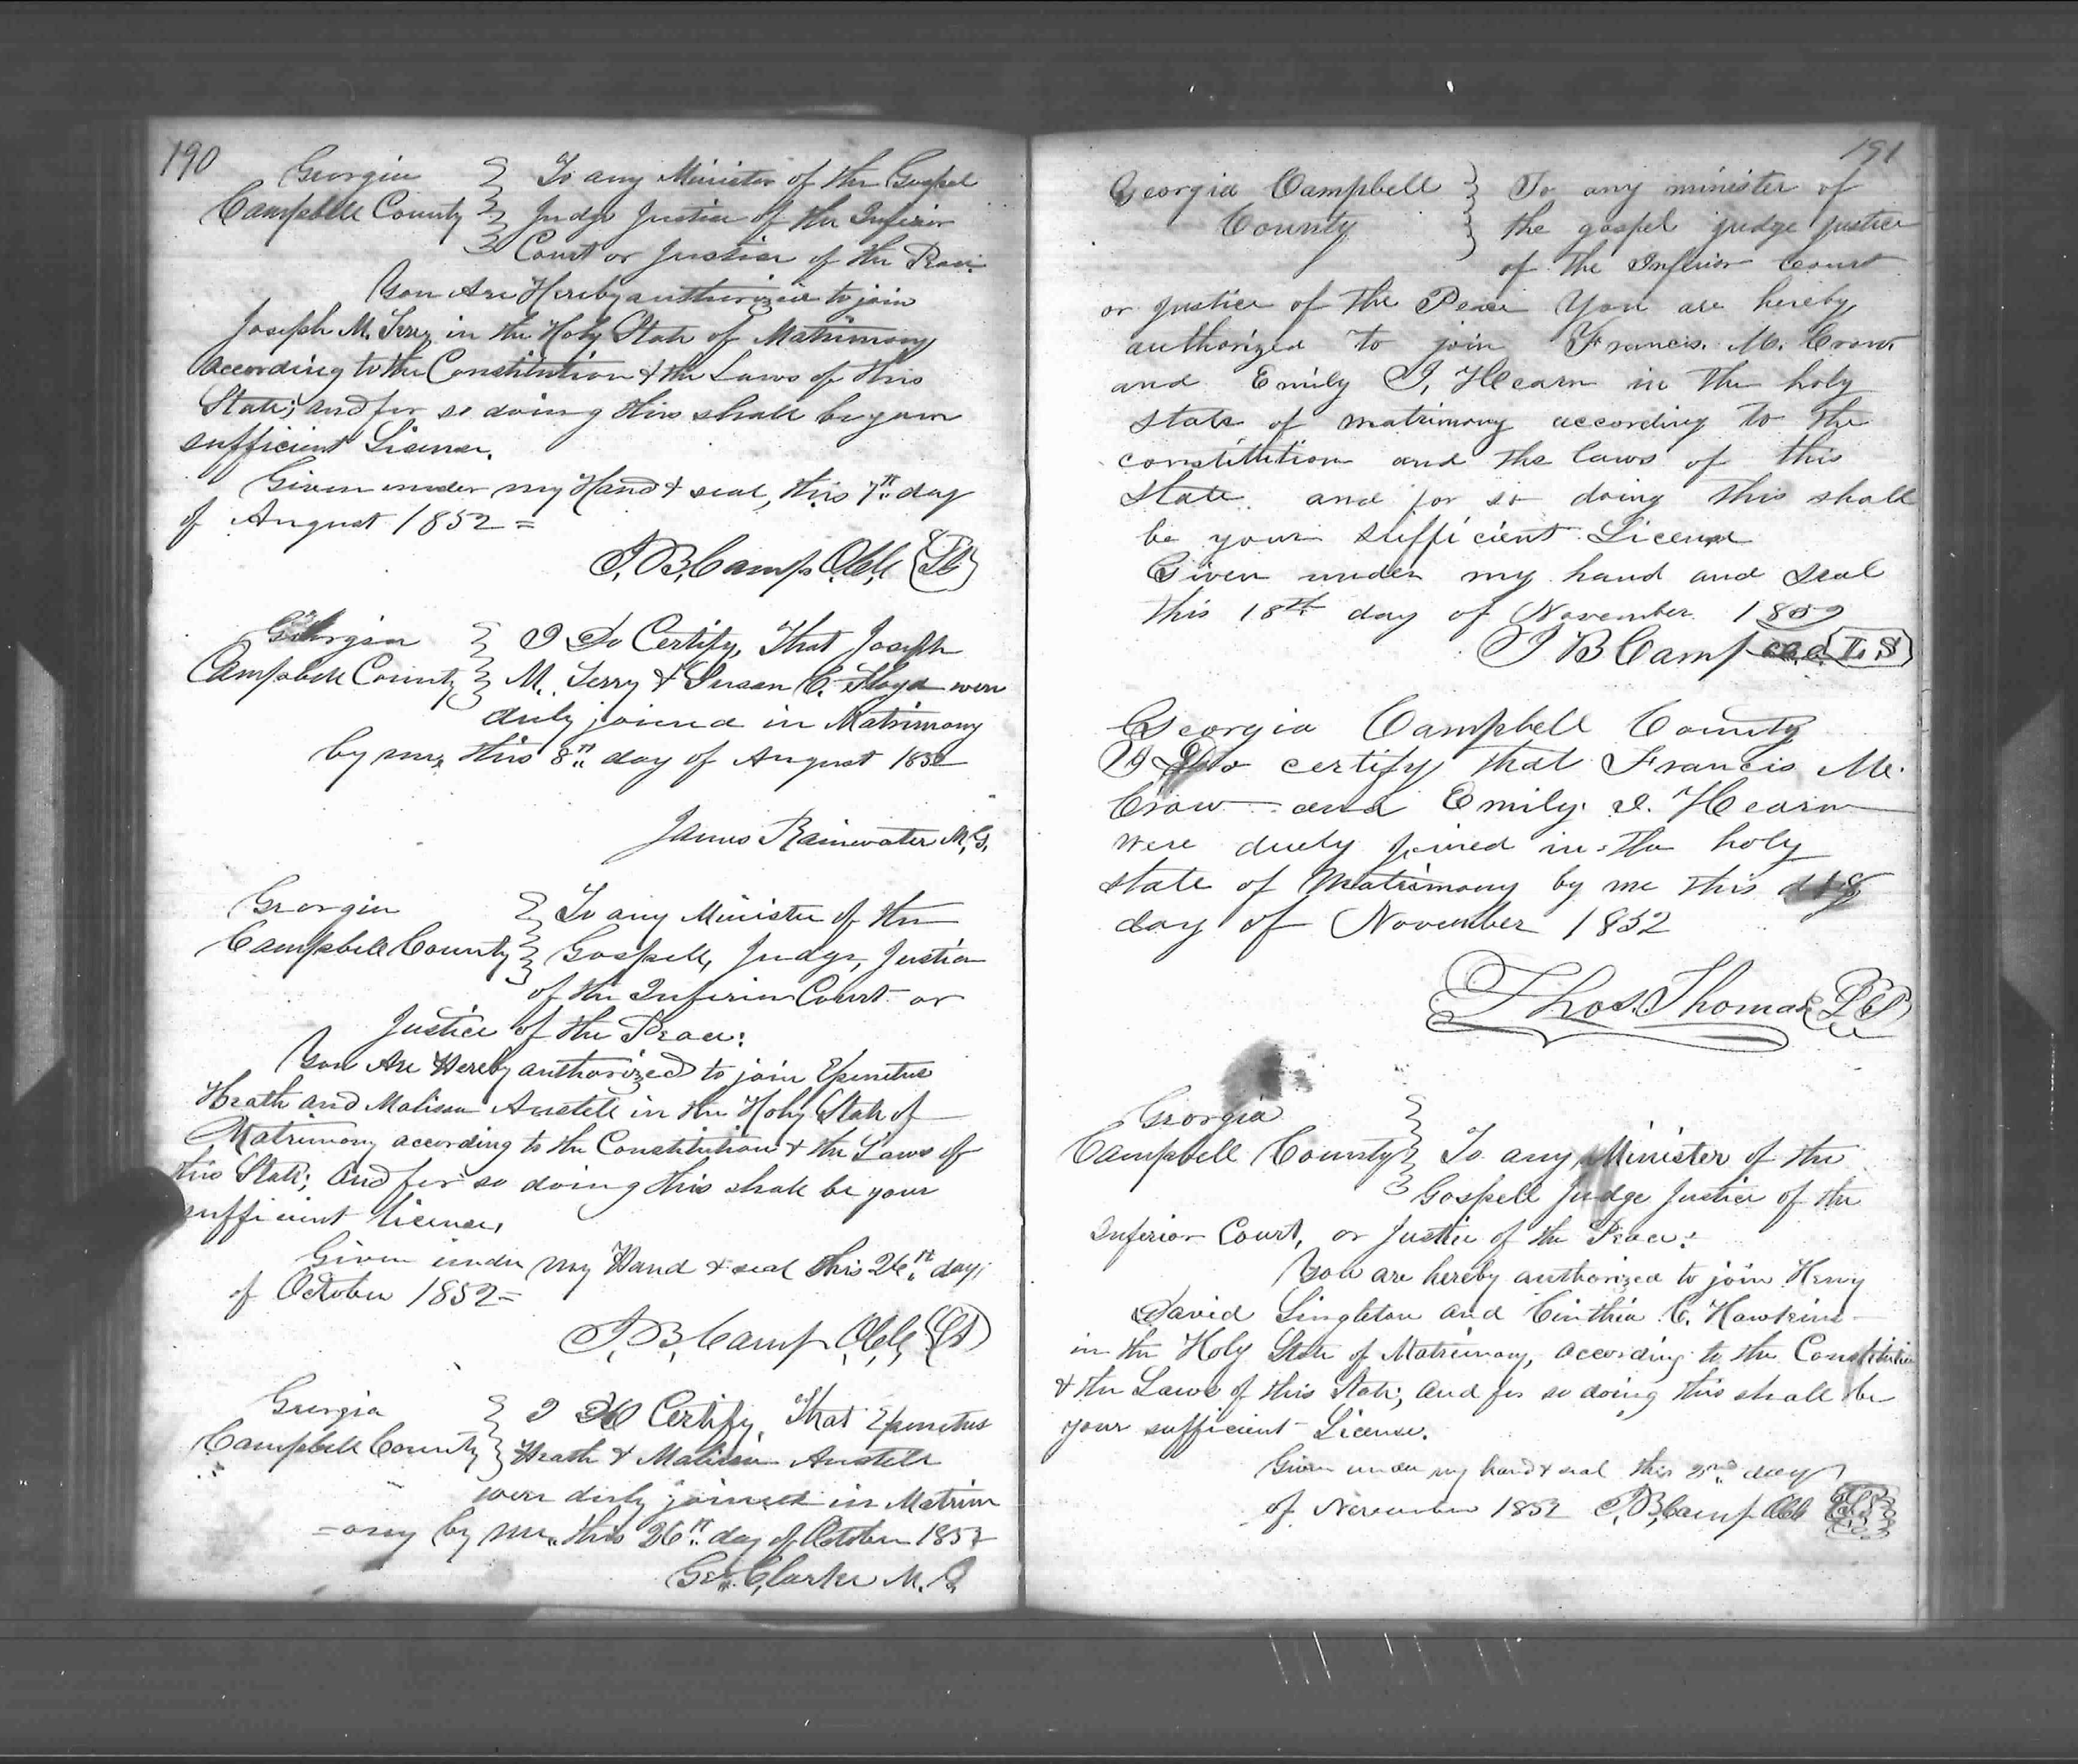 190
Georgia } To any Minister of the Gospel
Campbell County } Judge Justice of the Inferior
Court or Justice of the Peace
You Are Hereby authorized to join
Joseph M. Terry in the Holy State of Matrimony
according to the Constitution & the Laws of this
State; and for so doing this shall be your
sufficient License.
Given under my Hand & seal, this 7th day
of August 1852 =
J. B. Camp C.C.O.
Georgia } I Do Certify, That Joseph
Campbell County } M. Terry & Susan C. Floyd were
duly joined in Matrimony
by me, this 8th day of August 1852
James Rainwater M.G.
Georgia } To any Minister of the
Campbell County } Gospell, Judge, Justice
of the Inferior Court or
Justice of the Peace:
You Are Hereby authorized to join Epenetus
Heath and Malissa Austell in the Holy State of
Matrimony according to the Constitution & the Laws of
this State; and for so doing this shall be your
sufficient license,
Given under my Hand & seal this 26th day,
of October 1852 =
J. B. Camp
Georgia } I Do Certify, That Epenetus
Campbell County } Heath & Malissa Austell
were duly joined in Matrim
=ony by me, this 26th day of October 1852
Geo. Clarke M. G.
191
Georgia Campbell } To any minister of
County } the gospel judge justice
of the Inferior Court
or justice of the Peace You are hereby
authorized to join Francis. M. Crow
and Emily I, Hearn in the holy
state of matrimony according to the
constitition and the laws of this
State. and for so doing this shall
be your sufficient License
Given under my hand and seal
this 18th day of November 1852
J B Camp cco L.S
Georgia Campbell County
I Do certify that Francis M.
Crow and Emily I. Hearn
were duely joined in the holy
state of Matrimony by me this 18
day of November 1852
Thos. Thomas
Georgia }
Campbell County } To any Minister of the
Gospell Judge Justice of the
Inferior Court, or Justice of the Peace:
You are hereby authorized to join Henry
David Singleton and Cinthia C. Hawkins
in the Holy State of Matrimony, according to the Constitution
& the Laws of this State; and for so doing this shall be
your sufficient License.
Given under my hand & seal this 2nd day
of November 1852 J. B. Camp